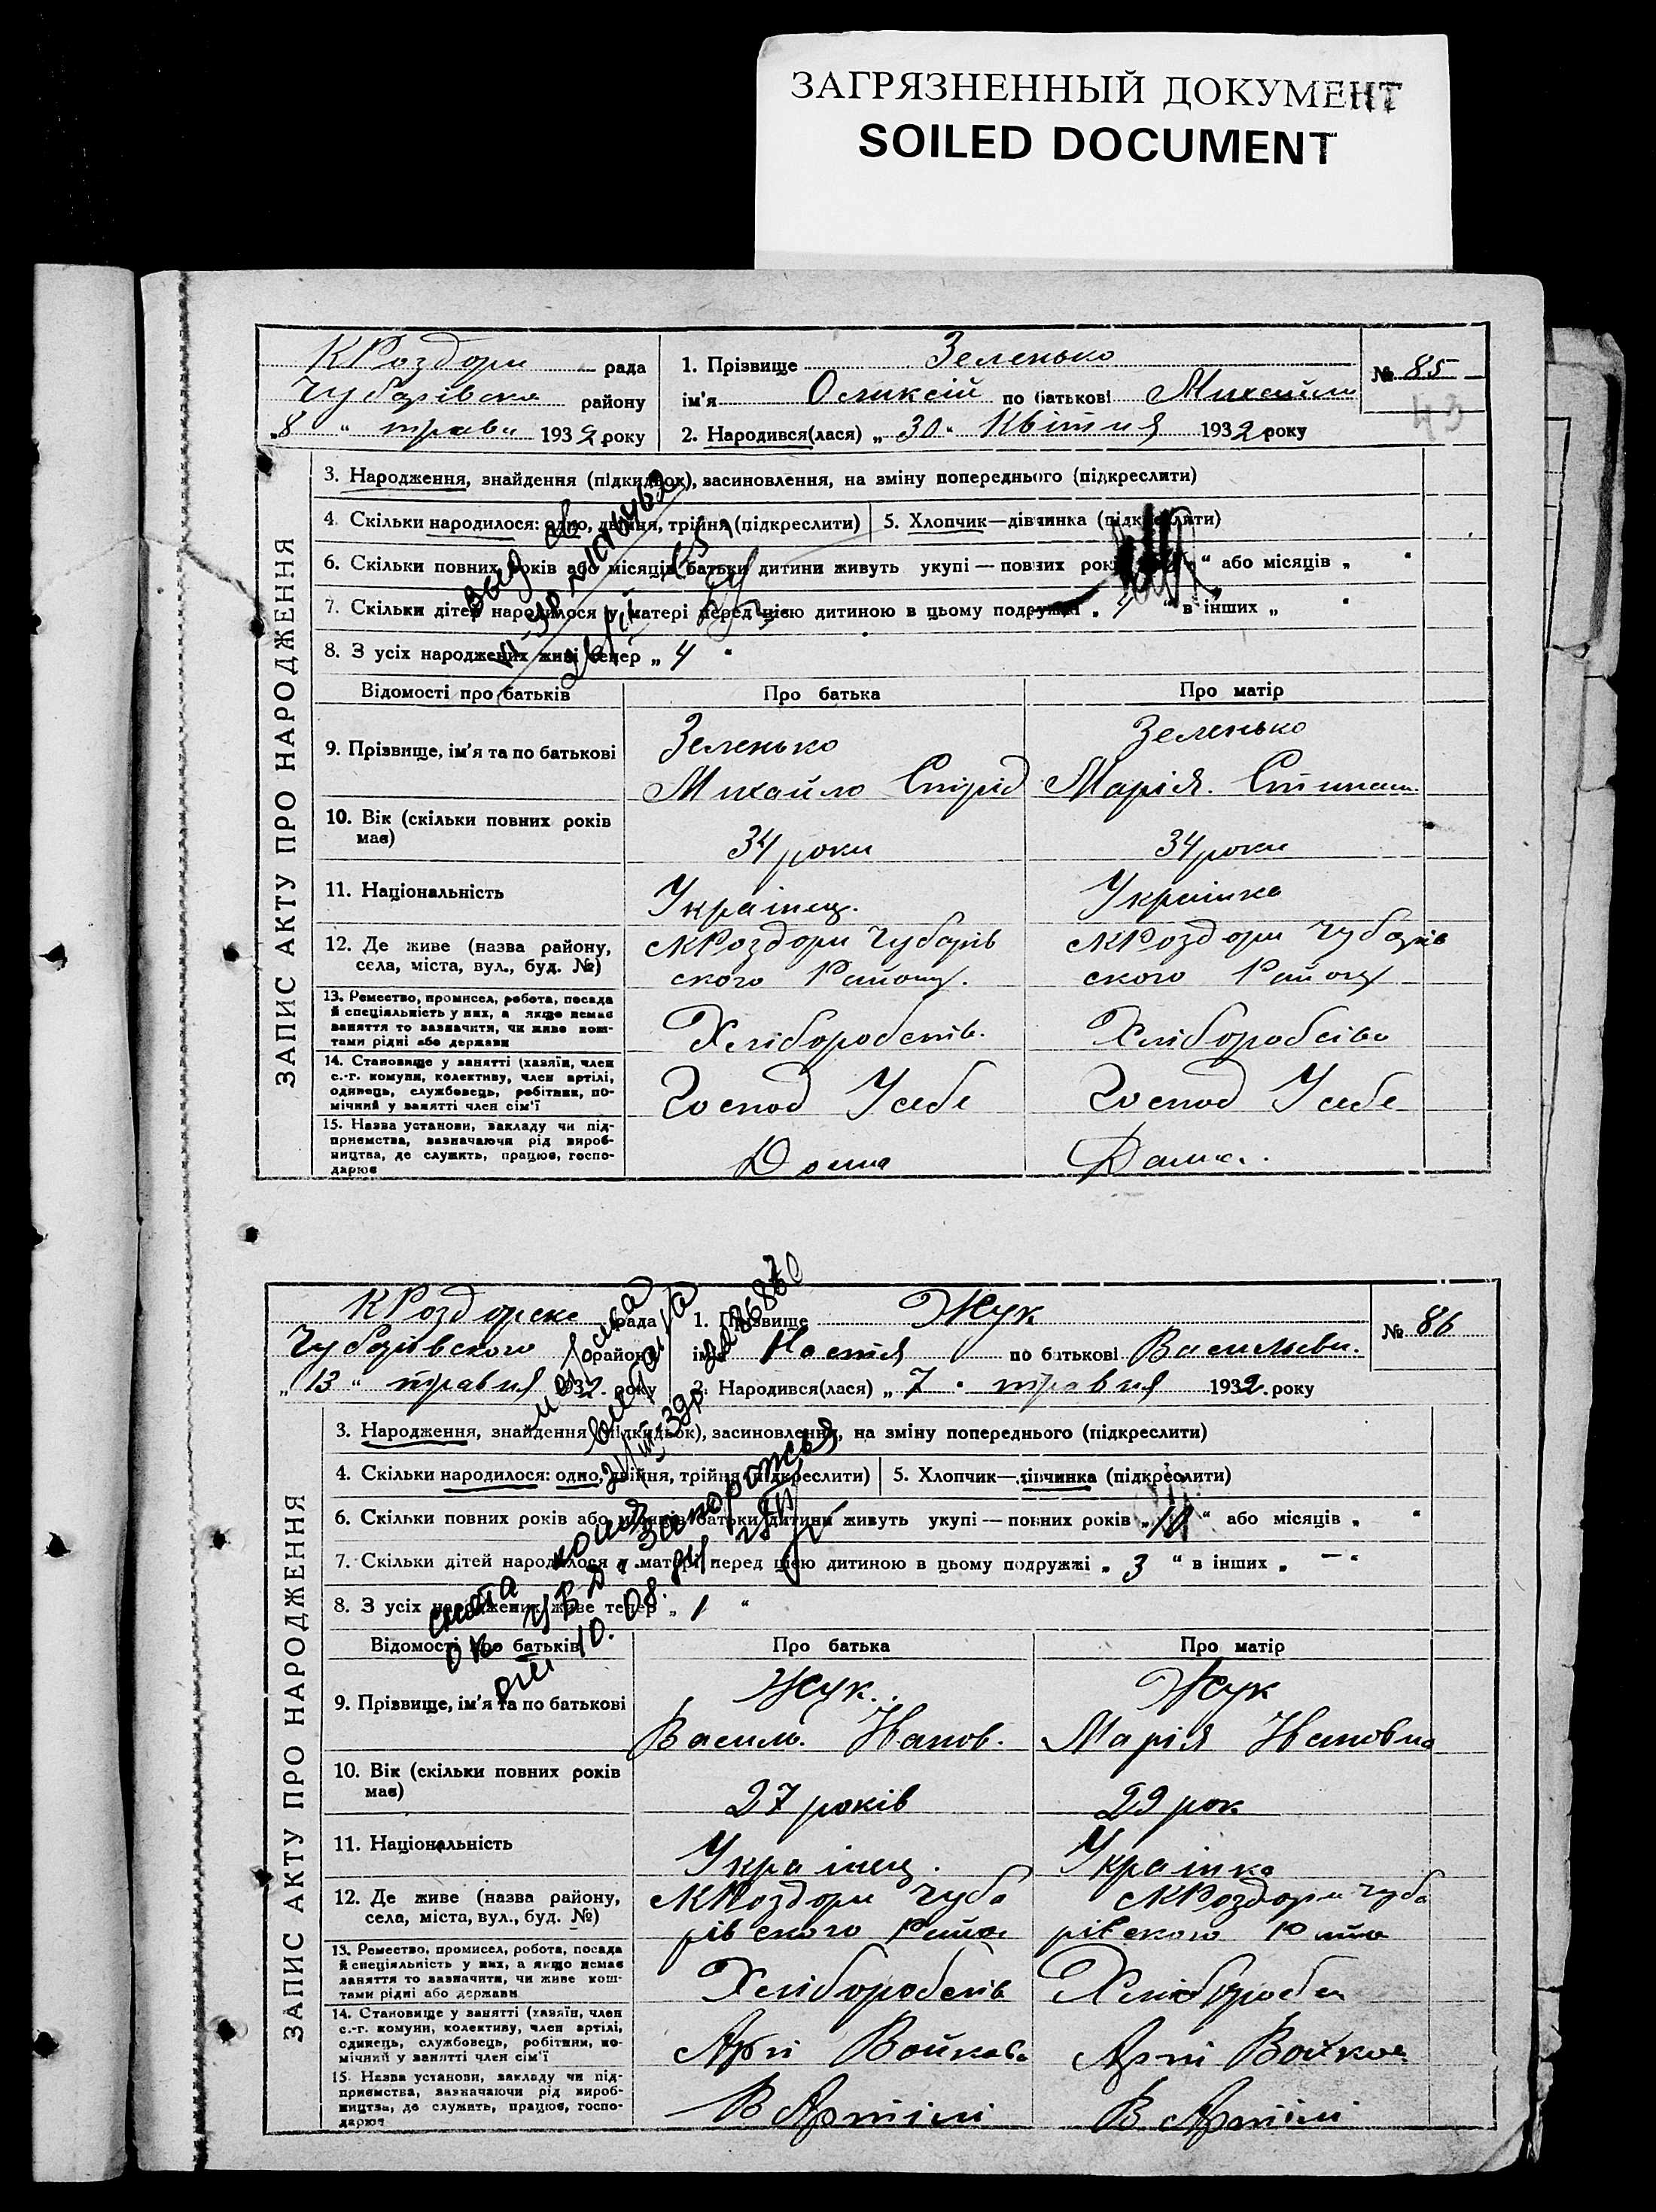 ЗАГРЯЗНЕННЫЙ ДОКУМЕНТ
SOILED DOCUMENT
ЗАПИС АКТУ ПРО НАРОДЖЕННЯ
КРоздори рада
Чубарівська району
„8 “ трав 1932 року
1. Прізвище Зеленько
ім'я Оликсій по батькові Михайло
2. Народився(лася) „ 30 “ Квітня 1932 року
№ 85
43
3. Народження, знайдення (підкидьок), засиновлення, на зміну попереднього (підкреслити)
4. Скільки народилося: одно, двійня, трійня (підкреслити)
5. Хлопчик—дівчинка (підкреслити)
6. Скільки повних років або місяців батьки дитини живуть укупі — повних років “ або місяців „ “
7. Скільки дітей народилося у матері перед цією дитиною в цьому подружжі „ 4 “ в інших „ “
8. З усіх народжених живі тепер „ 4 “
Відомості про батьків Про батька Про матір
9. Прізвище, ім'я та по батькові
Зеленько
Михайло Спірід
Зеленько
Марія.
10. Вік (скільки повних років має)
34 роки
34 роки
11. Національність
Українец.
Украінка
12. Де живе (назва району, села, міста, вул., буд. №)
с КРоздори Чубарів
ского Району.
с КРоздори Чубарів
ского Району
13. Ремество, промисел, робота, посада й спеціяльність у них, а якщо немає заняття то зазначити, чи живе коштами рідні або держави
Хліборобств.
Хліборобсіво
14. Становище у занятті (хазяїн, член с.-г. комуни, колективу, член артілі, одинець, службовець, робітник, помічний у занятті член сім'ї
Господ У себе
Господ У себе
15. Назва установи, закладу чи підприємства, зазначаючи рід виробництва, де служить, працює, господарює
Дома
Дома.
ЗАПИС АКТУ ПРО НАРОДЖЕННЯ
КРоздорске рада
Чубарівского району
„ 13 “ травня 1932. року
1. Прізвище Жук
ім'я Настя по батькові Васильєвн.
2. Народився(лася) „ 7 “ травня 1932. року
№ 86
3. Народження, знайдення (підкидьок), засиновлення, на зміну попереднього (підкреслити)
4. Скільки народилося: одно, двійня, трійня (підкреслити)
5. Хлопчик—дівчинка (підкреслити)
6. Скільки повних років або місяців батьки дитини живуть укупі — повних років „ “ або місяців „ “
7. Скільки дітей народилося у матері перед цією дитиною в цьому подружжі „ 3 “ в інших „ — “
8. З усіх народжених живе тепер „ 1 “
снята копия
ОК УВД г. Запорожья
от 10. 08. 84
Відомості про батьків Про батька Про матір
9. Прізвище, ім'я та по батькові
Жук.
Василь. Иванов.
Жук
Марія Ивановна
10. Вік (скільки повних років має)
27 років
29 рок
11. Національність
Українец.
Украінка
12. Де живе (назва району, села, міста, вул., буд. №)
с КРоздори Чуба
рівского Райо
с КРоздори Чуба
рівского Райо
13. Ремество, промисел, робота, посада й спеціяльність у них, а якщо немає заняття то зазначити, чи живе коштами рідні або держави
Хліборобств
Хлібороб
14. Становище у занятті (хазяїн, член с.-г. комуни, колективу, член артілі, одинець, службовець, робітник, помічний у занятті член сім'ї
Арті Войкова
Арті Войков
15. Назва установи, закладу чи підприємства, зазначаючи рід виробництва, де служить, працює, господарює
В Артілі
В Артілі